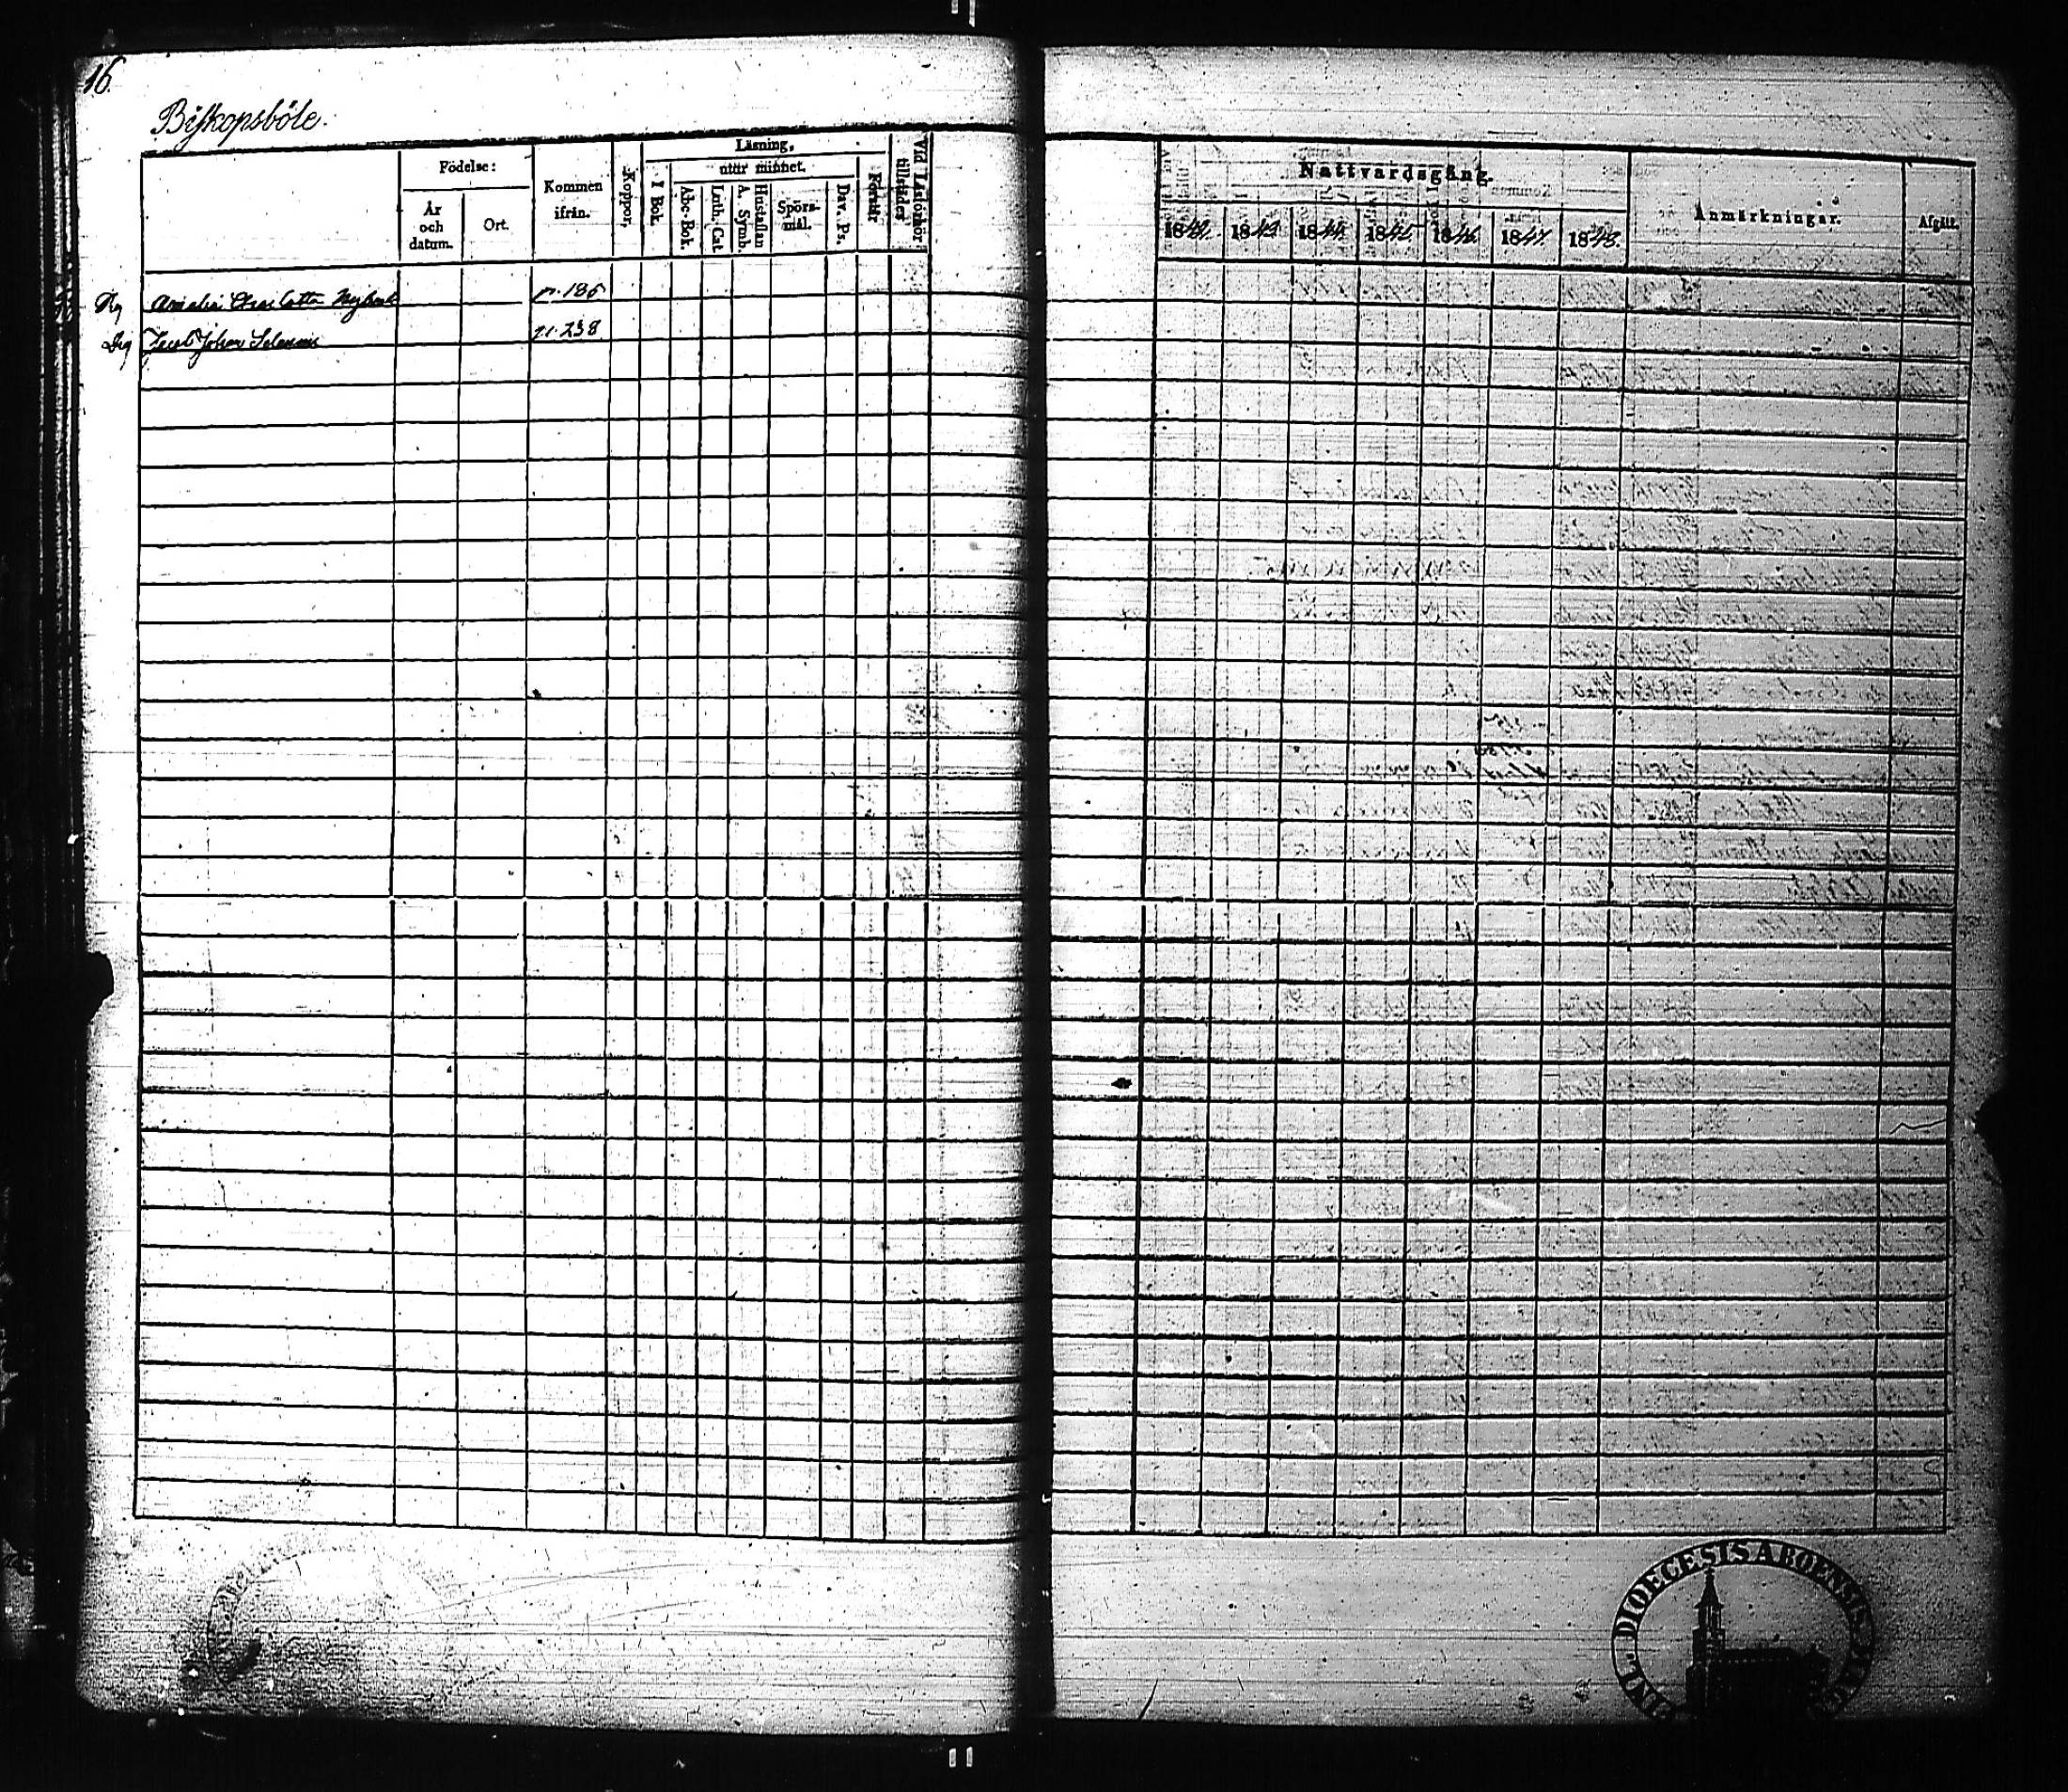 16.
Biskopsböle.
Födelse:
År och datum.
Ort.
Kommen ifrån.
Koppor.
Läsning,
I Bok.
utur minnet.
Abc-Bok
Luth. Cat.
Hustaflan A. Symb.
Spörsmål.
Dav. Ps.
Förstår
Vid Läsförhör tillstädes
Nattvardsgång.
1842. 1843 1844 1845 1846 1847 1848.
Anmärkningar.
Afgått.
Pig Amalia Charlotta p. 186
Drg Jacob Johan p. 238
DIOECESIS ABOENSIS